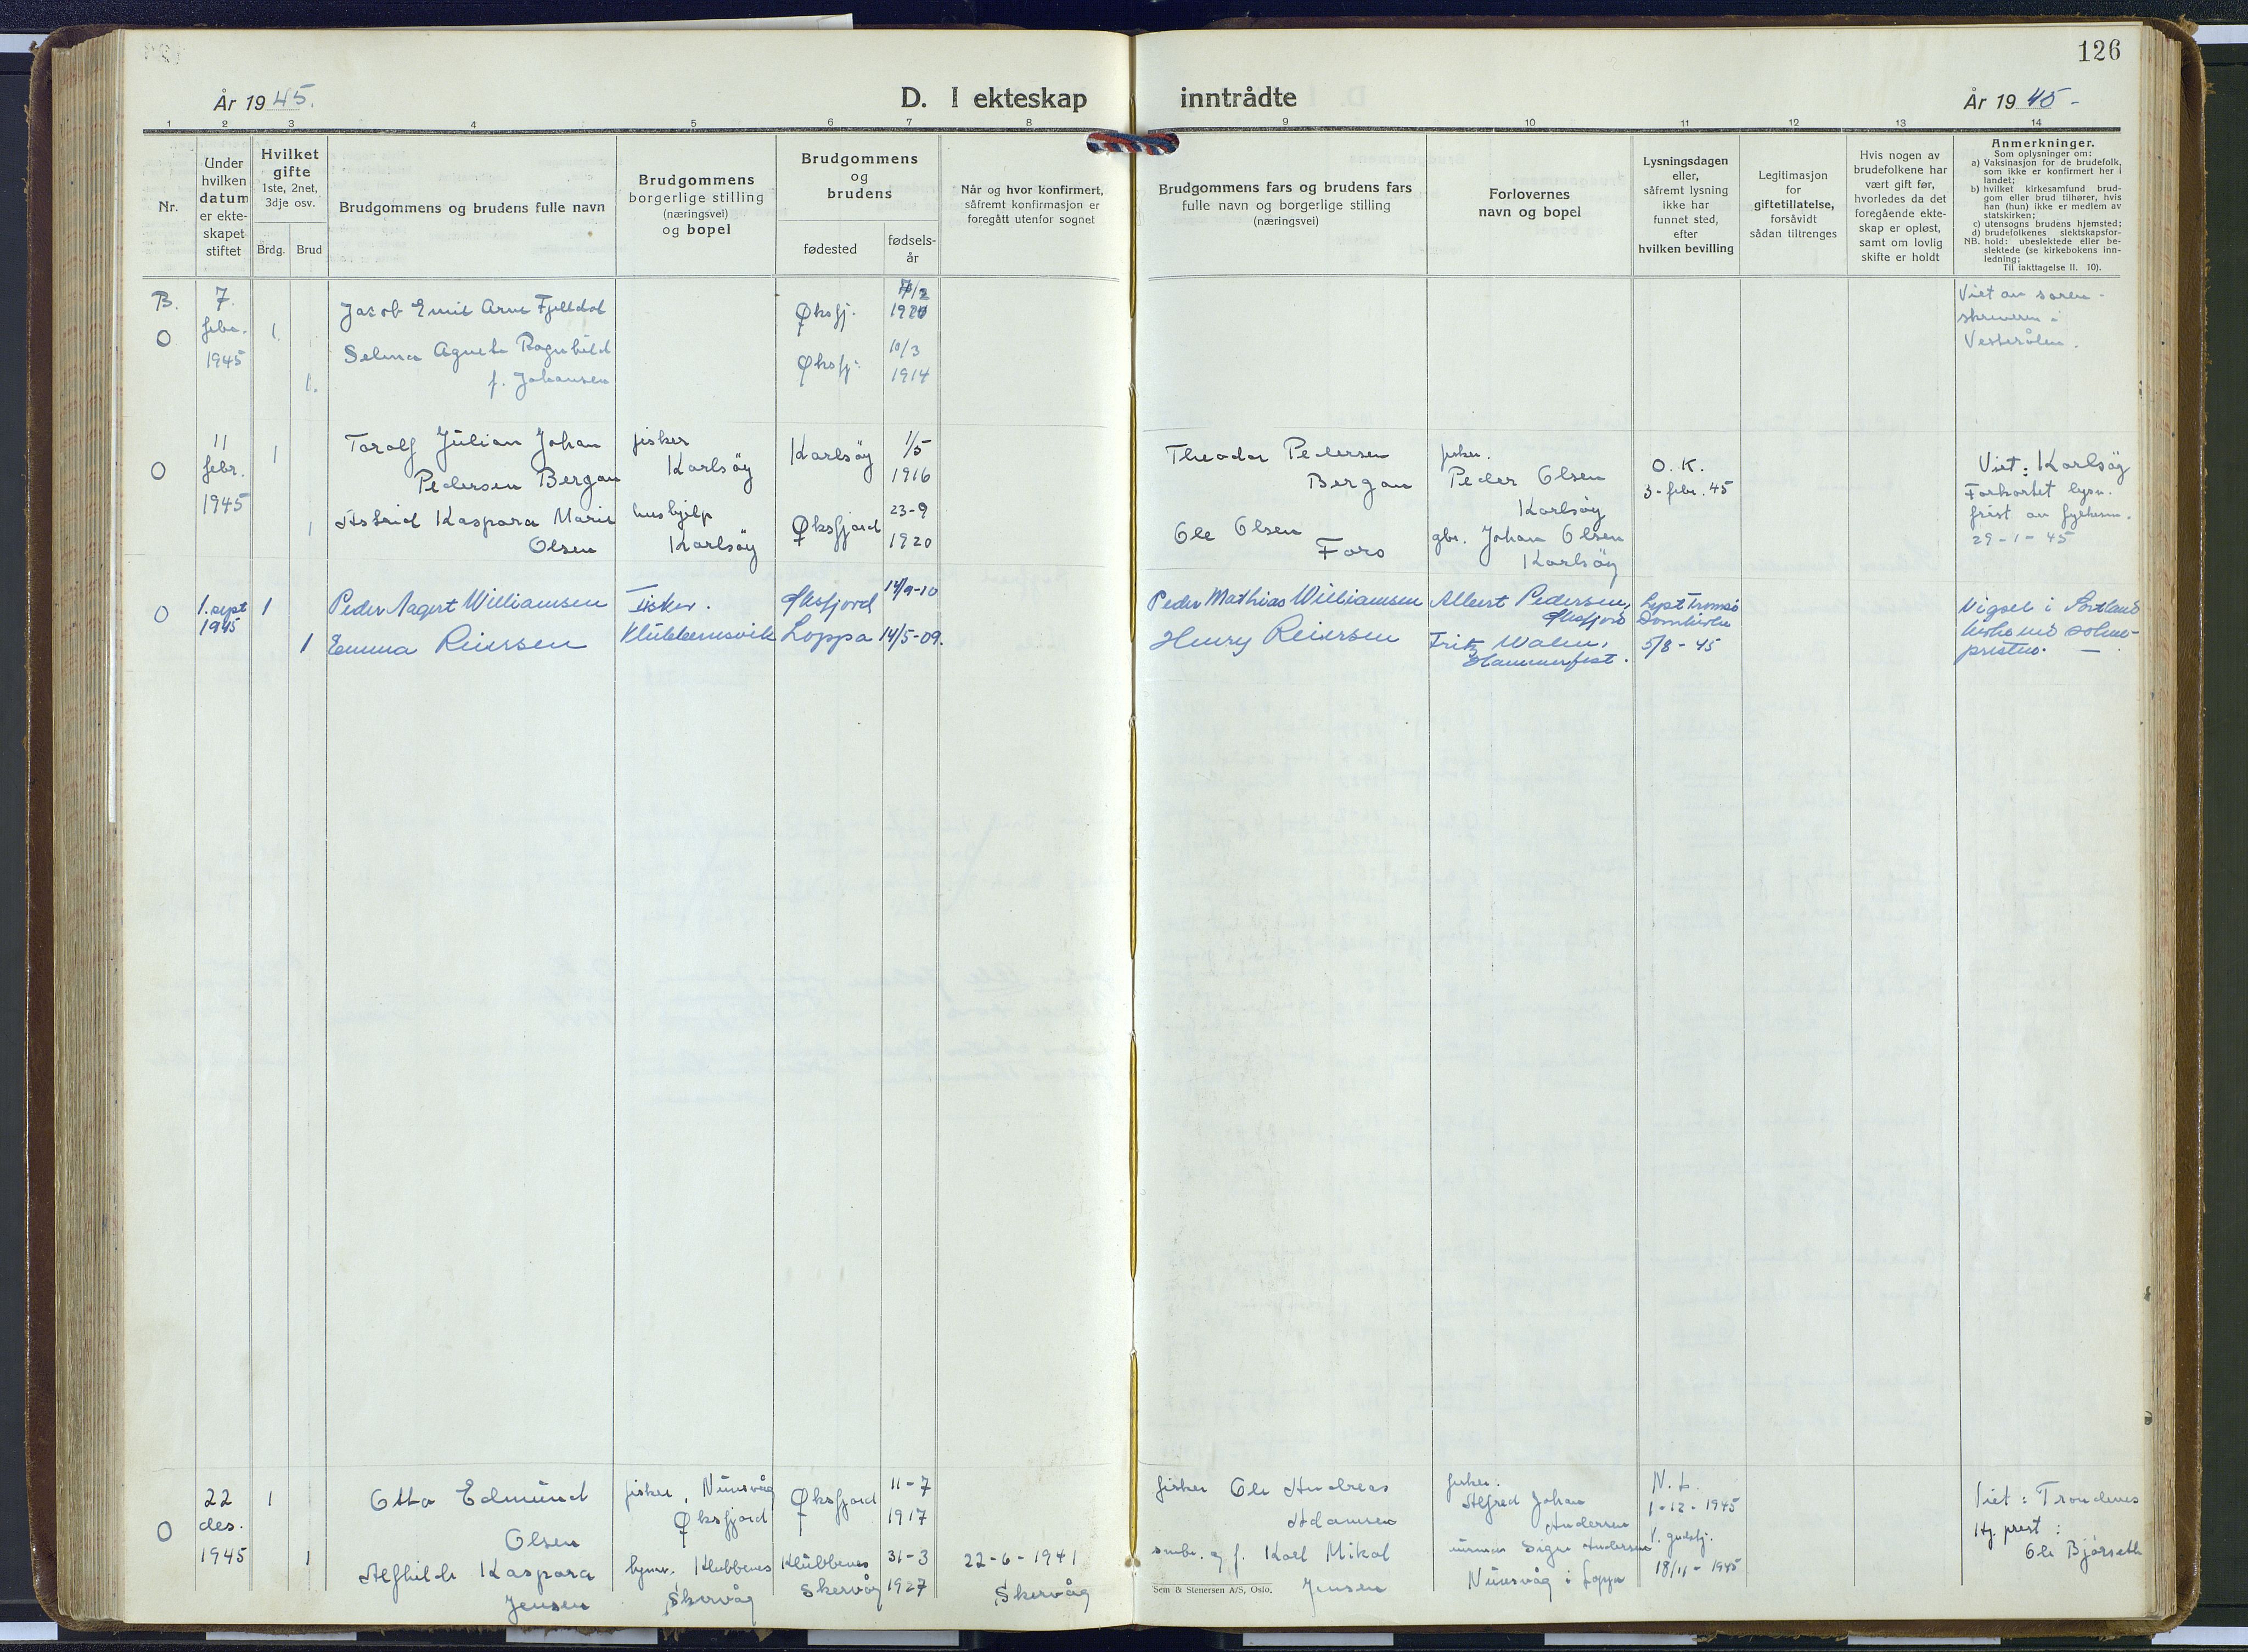 126
År 1945.
D. I ekteskap inntrådte
År 1945-
1 2 3 4 5 6 7 8 9 10 11 12 13 14
Nr.
Under
hvilken
datum
er ekte-
skapet
stiftet
Hvilket
gifte
1ste, 2net,
3dje osv.
Brdg. Brud
Brudgommens og brudens fulle navn
Brudgommens
borgerlige stilling
(næringsvei)
og bopel
Brudgommens
og
brudens
fødested
fødsels-
år
Når og hvor konfirmert,
såfremt konfirmasjon er
foregått utenfor sognet
Brudgommens fars og brudens fars
fulle navn og borgerlige stilling
(næringsvei)
Forlovernes
navn og bopel
Lysningsdagen
eller,
såfremt lysning
ikke har
funnet sted,
efter
hvilken bevilling
Legitimasjon
for
giftetillatelse,
forsåvidt
sådan tiltrenges
Hvis nogen av
brudefolkene har
vært gift før,
hvorledes da det
foregående ekte-
skap er opløst,
samt om lovlig
skifte er holdt
Anmerkninger.
Som oplysninger om:
a) Vaksinasjon for de brudefolk,
som ikke er konfirmert her i
landet;
b) hvilket kirkesamfund brud-
gom eller brud tilhører, hvis
han (hun) ikke er medlem av
statskirken;
c) utensogns brudens hjemsted;
d) brudefolkenes slektskapsfor-
NB. hold: ubeslektede eller be-
slektede (se kirkebokens inn-
ledning;
Til iakttagelse II. 10).
B.
O
7.
febr.
1945
1
1.
Jacob Emil Arne Fjelldal
Selma Agnete Ragnhild
f. Johansen
Øksfj.
Øksfj.
1/2
1920
10/3
1914
Viet av soren-
skriveren i
Vesterålen.
O
11
febr.
1945
1
1
Torolf Julian Johan
Pedersen Bergan
Astrid Kaspara Marie
Olsen
fisker
Karlsøy
hushjelp
Karlsøy
Karlsøy
Øksfjord
1/5
1916
23-9
1920
Theodor Pedersen
Bergan
Ole Olsen
Foro
fisker.
Peder Olsen
Karlsøy
gbr. Johan Olsen
Karlsøy
O. K.
3-febr. 45
Viet: Karlsøy
Forkortet lysn.
frist av fylkesm.
29-1-45
O
1. sept
1945
1
1
Peder Aagert Williamsen
Emma Reiersen
Fisker.
Klubbenesvik
Øksfjord
Loppa
14/9-10
14/5-09.
Peder Mathias Williamsen
Henry Reiersen
Albert Pedersen,
Øksfjord
Fritz Walen,
Hammerfest.
Lyst Tromsø
Domkirke
5/8-45
Vigsel i Sortland
kirke ved sokne-
presten.
O
22
des.
1945
1
1
Otto Edmund
Olsen
Alfhild Kaspara
Jensen
fisker, Nuvsvåg
Øksfjord
hjmv. Klubbenes
Skervåg
Øksfjord
Klubbenes
Skervåg
11-7
1917
31-3
1927
22-6-1941
Skervåg
fisker Ole Andreas
Adamsen
småbr. og f. Karl Mikal
Jensen
fisker.
Alfred Johan
Andersen
Signe Andersen
Nuvsvåg i Loppa
N. L.
1-12-1945
V. gudstj.
18/11-1945
Viet: Trondenes
Hj. prest:
Ole Bjørseth
Sem & Stenersen A/S, Oslo.